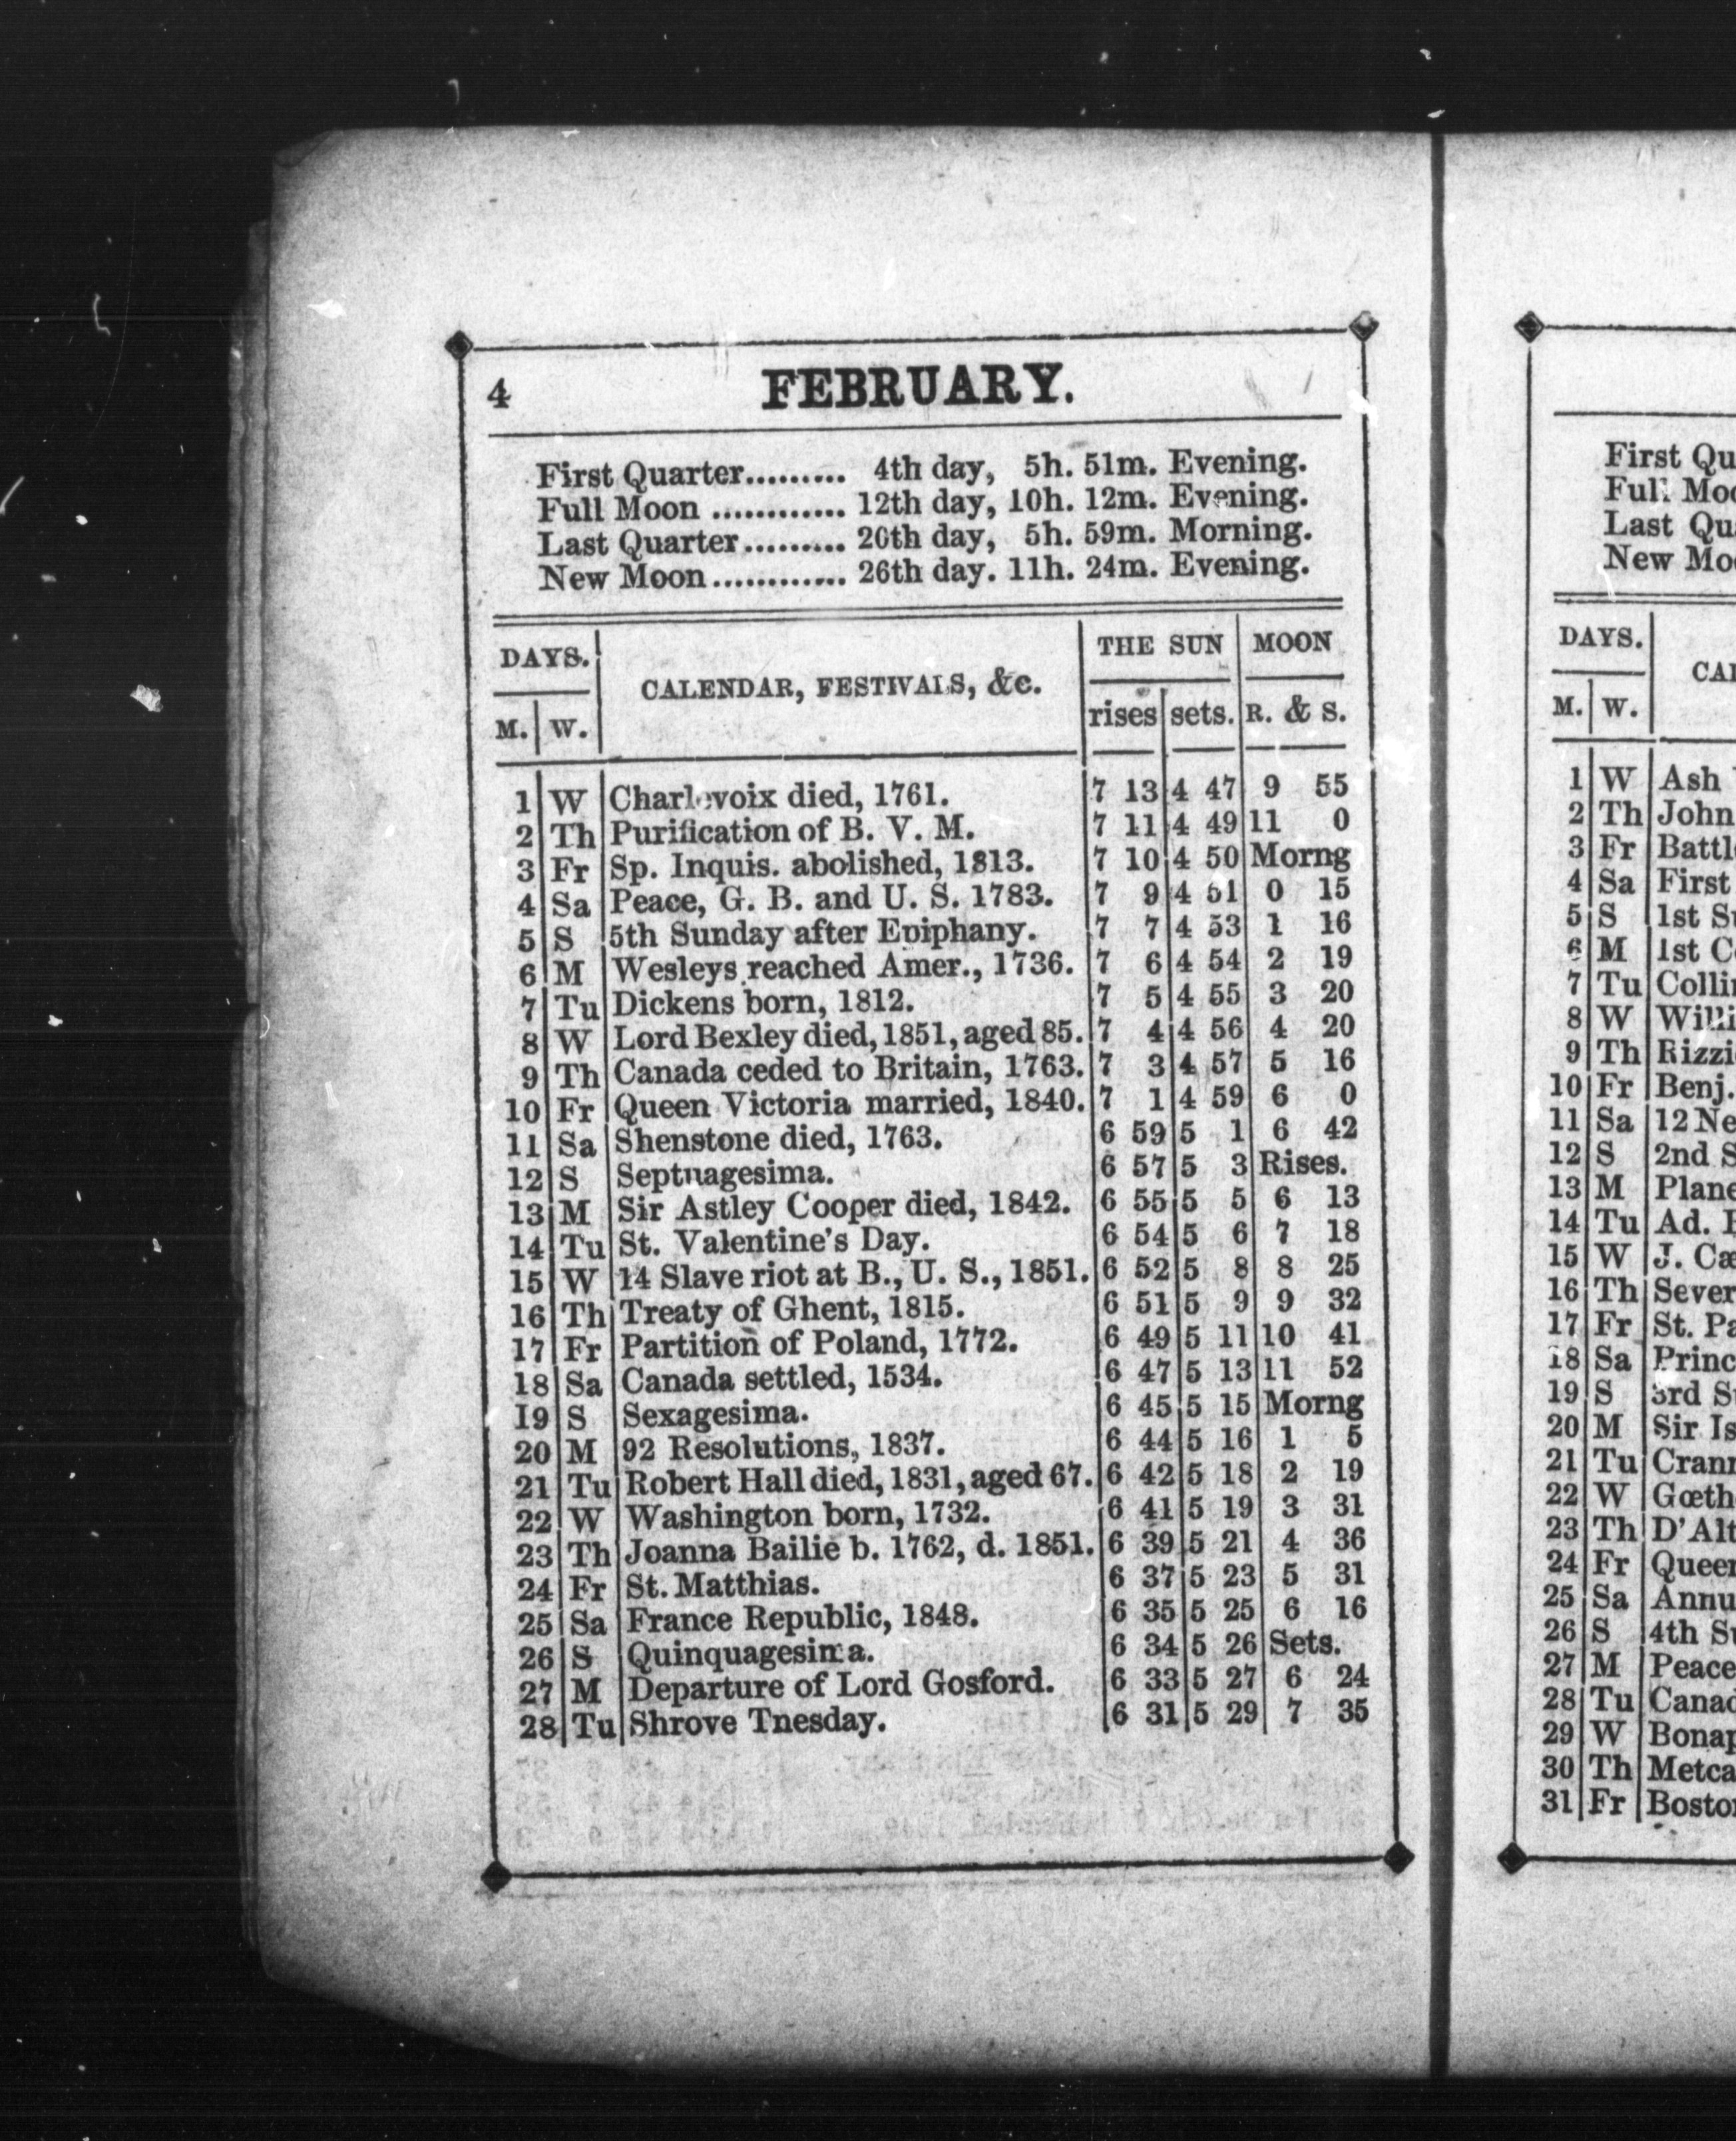 4
FEBRUARY.
First Quarter......... 4th day, 5h. 51m. Evening.
Full Moon ............ 12th day, 10h. 12m. Evening.
Last Quarter......... 20th day, 5h. 59m. Morning.
New Moon............ 26th day. 11h. 24m. Evening.
DAYS. CALENDAR, FESTIVALS, &c. THE SUN MOON
M. W. rises sets. R. & S.
1 W Charlevoix died, 1761. 7 13 4 47 9 55
2 Th Purification of B. V. M. 7 11 4 49 11 0
3 Fr Sp. Inquis. abolished, 1813. 7 10 4 50 Morng
4 Sa Peace, G. B. and U. S. 1783. 7 9 4 51 0 15
5 S 5th Sunday after Epiphany. 7 7 4 53 1 16
6 M Wesleys reached Amer., 1736. 7 6 4 54 2 19
7 Tu Dickens born, 1812. 7 5 4 55 3 20
8 W Lord Bexley died, 1851, aged 85. 7 4 4 56 4 20
9 Th Canada ceded to Britain, 1763. 7 3 4 57 5 16
10 Fr Queen Victoria married, 1840. 7 1 4 59 6 0
11 Sa Shenstone died, 1763. 6 59 5 1 6 42
12 S Septuagesima. 6 57 5 3 Rises.
13 M Sir Astley Cooper died, 1842. 6 55 5 5 6 13
14 Tu St. Valentine's Day. 6 54 5 6 7 18
15 W 14 Slave riot at B., U. S., 1851. 6 52 5 8 8 25
16 Th Treaty of Ghent, 1815. 6 51 5 9 9 32
17 Fr Partition of Poland, 1772. 6 49 5 11 10 41
18 Sa Canada settled, 1534. 6 47 5 13 11 52
19 S Sexagesima. 6 45 5 15 Morng
20 M 92 Resolutions, 1837. 6 44 5 16 1 5
21 Tu Robert Hall died, 1831, aged 67. 6 42 5 18 2 19
22 W Washington born, 1732. 6 41 5 19 3 31
23 Th Joanna Bailie b. 1762, d. 1851. 6 39 5 21 4 36
24 Fr St. Matthias. 6 37 5 23 5 31
25 Sa France Republic, 1848. 6 35 5 25 6 16
26 S Quinquagesima. 6 34 5 26 Sets.
27 M Departure of Lord Gosford. 6 33 5 27 6 24
28 Tu Shrove Tnesday. 6 31 5 29 7 35
First Qu
Full Moo
Last Qu
New Mo
DAYS.
M. W. CAL
1 W Ash
2 Th John
3 Fr Battl
4 Sa First
5 S 1st Su
6 M 1st C
7 Tu Collin
8 W Willi
9 Th Rizzi
10 Fr Benj.
11 Sa 12 Ne
12 S 2nd S
13 M Plane
14 Tu Ad.
15 W J. Cæ
16 Th Sever
17 Fr St. Pa
18 Sa Princ
19 S 3rd S
20 M Sir Is
21 Tu Crann
22 W Gœth
23 Th D'Alt
24 Fr Queen
25 Sa Annu
26 S 4th Su
27 M Peace
28 Tu Canad
29 W Bonap
30 Th Metca
31 Fr Boston